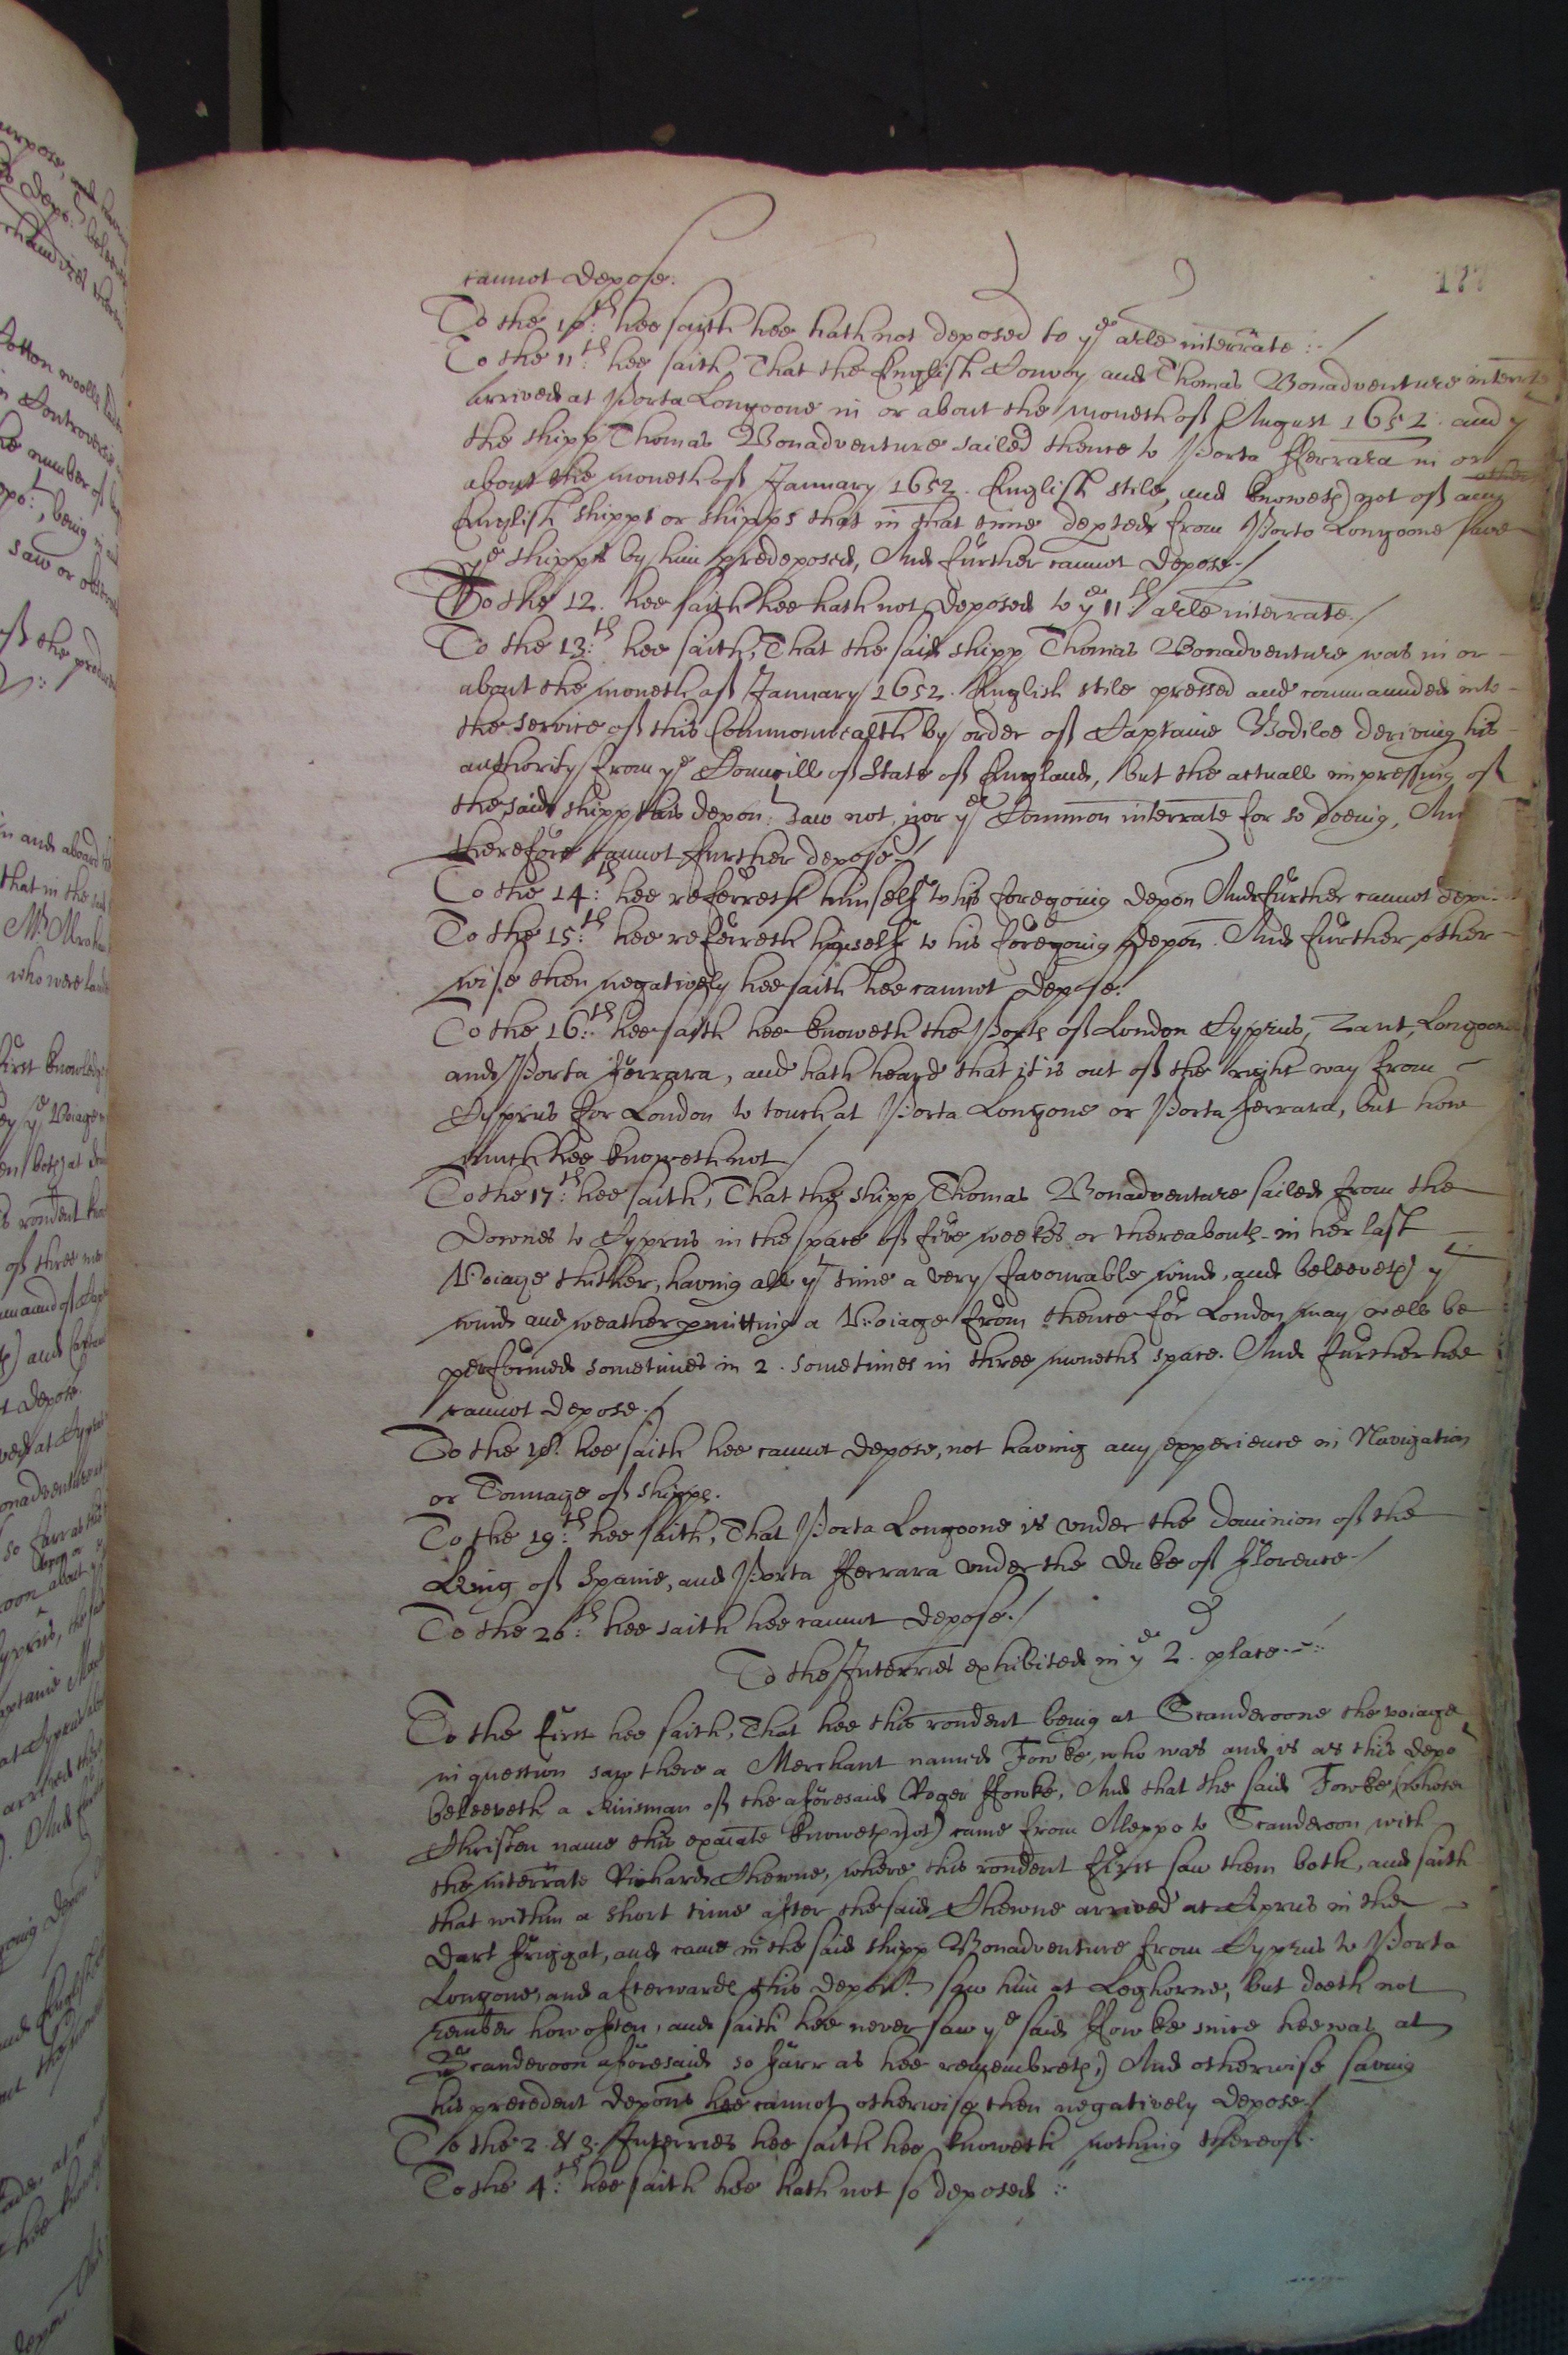 177
cannot depose.
To the 10:th hee saith hee hath not deposed to ye arle interrate :-/
To the 11:th hee saith, That the English Convoy and Thomas Bonadventure interrte
arrived at Porta Longoone in or about the moneth of August 1652. and yt
the shipp Thomas Bonadventure sailed thence to Porta fferrara in or
about the moneth of January 1652. English stile, and knoweth not of any other
English shippe or shipps that in that time depted from Porto Longoone save
ye shipps by him predeposed, And further cannot depose./
To the 12. hee saith hee hath not deposed to ye 11th arle interrate./
To the 13:th hee saith, That the said shipp Thomas Bonadventure was in or
about the moneth of January 1652. English stile pressed and commaunded into
the service of this Commonwealth by order of Captaine Bodiloe deriving his
authority from ye Councill of State of England, but the actuall impressing of
the said shipp this depon:t saw not, nor ye Common interrate for so doeing, And
therefore cannot further depose./
To the 14:th hee referreth himself to his foregoing depon And further cannot depo
To the 15:th hee referreth himself to his foregoing depon. And further other-
wise then negatively hee saith hee cannot depose.
To the 16:th hee saith hee knoweth the Ports of London Cyprus, Zant, Longoone
and Porta fferrara, and hath heard that it is out of the right way from
Cyprus for London to touch at Porta Longone or Porta fferrara, but how
much hee knoweth not/
To the 17:th hee saith, That the shipp Thomas Bonadventure sailed from the
Downes to Cyprus in the space of five weekes or thereabouts in her last
Voiage thither, having all yt time a very favourable wind, and beleeveth yt
wind and weather pmitting a Voiage from thence for London may well be
performed sometimes in 2. sometimes in three moneths space. And further hee
cannot depose./
To the 18. hee saith hee cannot depose, not having any experience in Navigation
or Tonnage of shipps.
To the 19:th hee saith, That Porta Longoone is under the dominion of the
King of Spaine, and Porta fferrara under the Duke of fflorence./
To the 20:th hee saith hee cannot depose./
To the Interries exhibited in ye 2. place.
To the first hee saith, That hee this rondent being at Scanderoone the voiage
in question saw there a Merchant named Fowke, who was and is as this depot
beleeveth a kinsman of the aforesaid Roger ffowke, And that the said Fowke (whose
Christen name this exaiate knoweth not) came from Aleppo to Scanderoon with
the interrate Richard Chewne, where this rondent first saw them both, and saith
that within a short time after the said Chewne arrived at Cyprus in the
Dart friggat, and came in the said shipp Bonadventure from Cyprus to Porta
Longone, and afterwards this depont saw him at Leghorne, but doeth not
rember how often, and saith hee never saw ye said ffowke since hee was at
Scanderoon aforesaid so farr as hee remembreth, And otherwise saving
his precedent depons hee cannot otherwise then negatively depose./
To the 2. & 3. Interries hee saith hee knoweth nothing thereof.
To the 4:th hee saith hee hath not so deposed :-